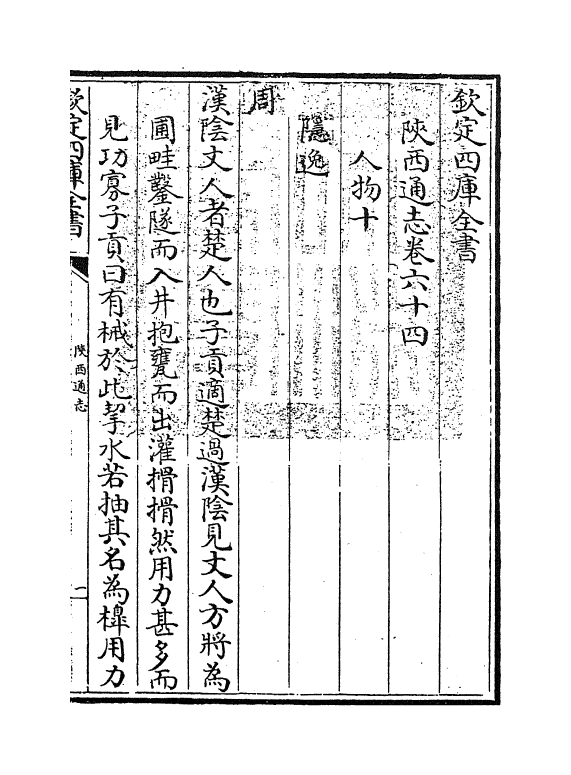 欽定四庫全書
陜西通志卷六十四
人物十
隱逸
周
漢陰丈人者楚人也子貢適楚過漢陰見丈人方將為
圃畦鑿隧而入井抱甕而出灌搰搰然用力甚多而
見功寡子貢曰有械於此挈水若抽其名為橰用力
欽定四庫全書
陜西通志
一